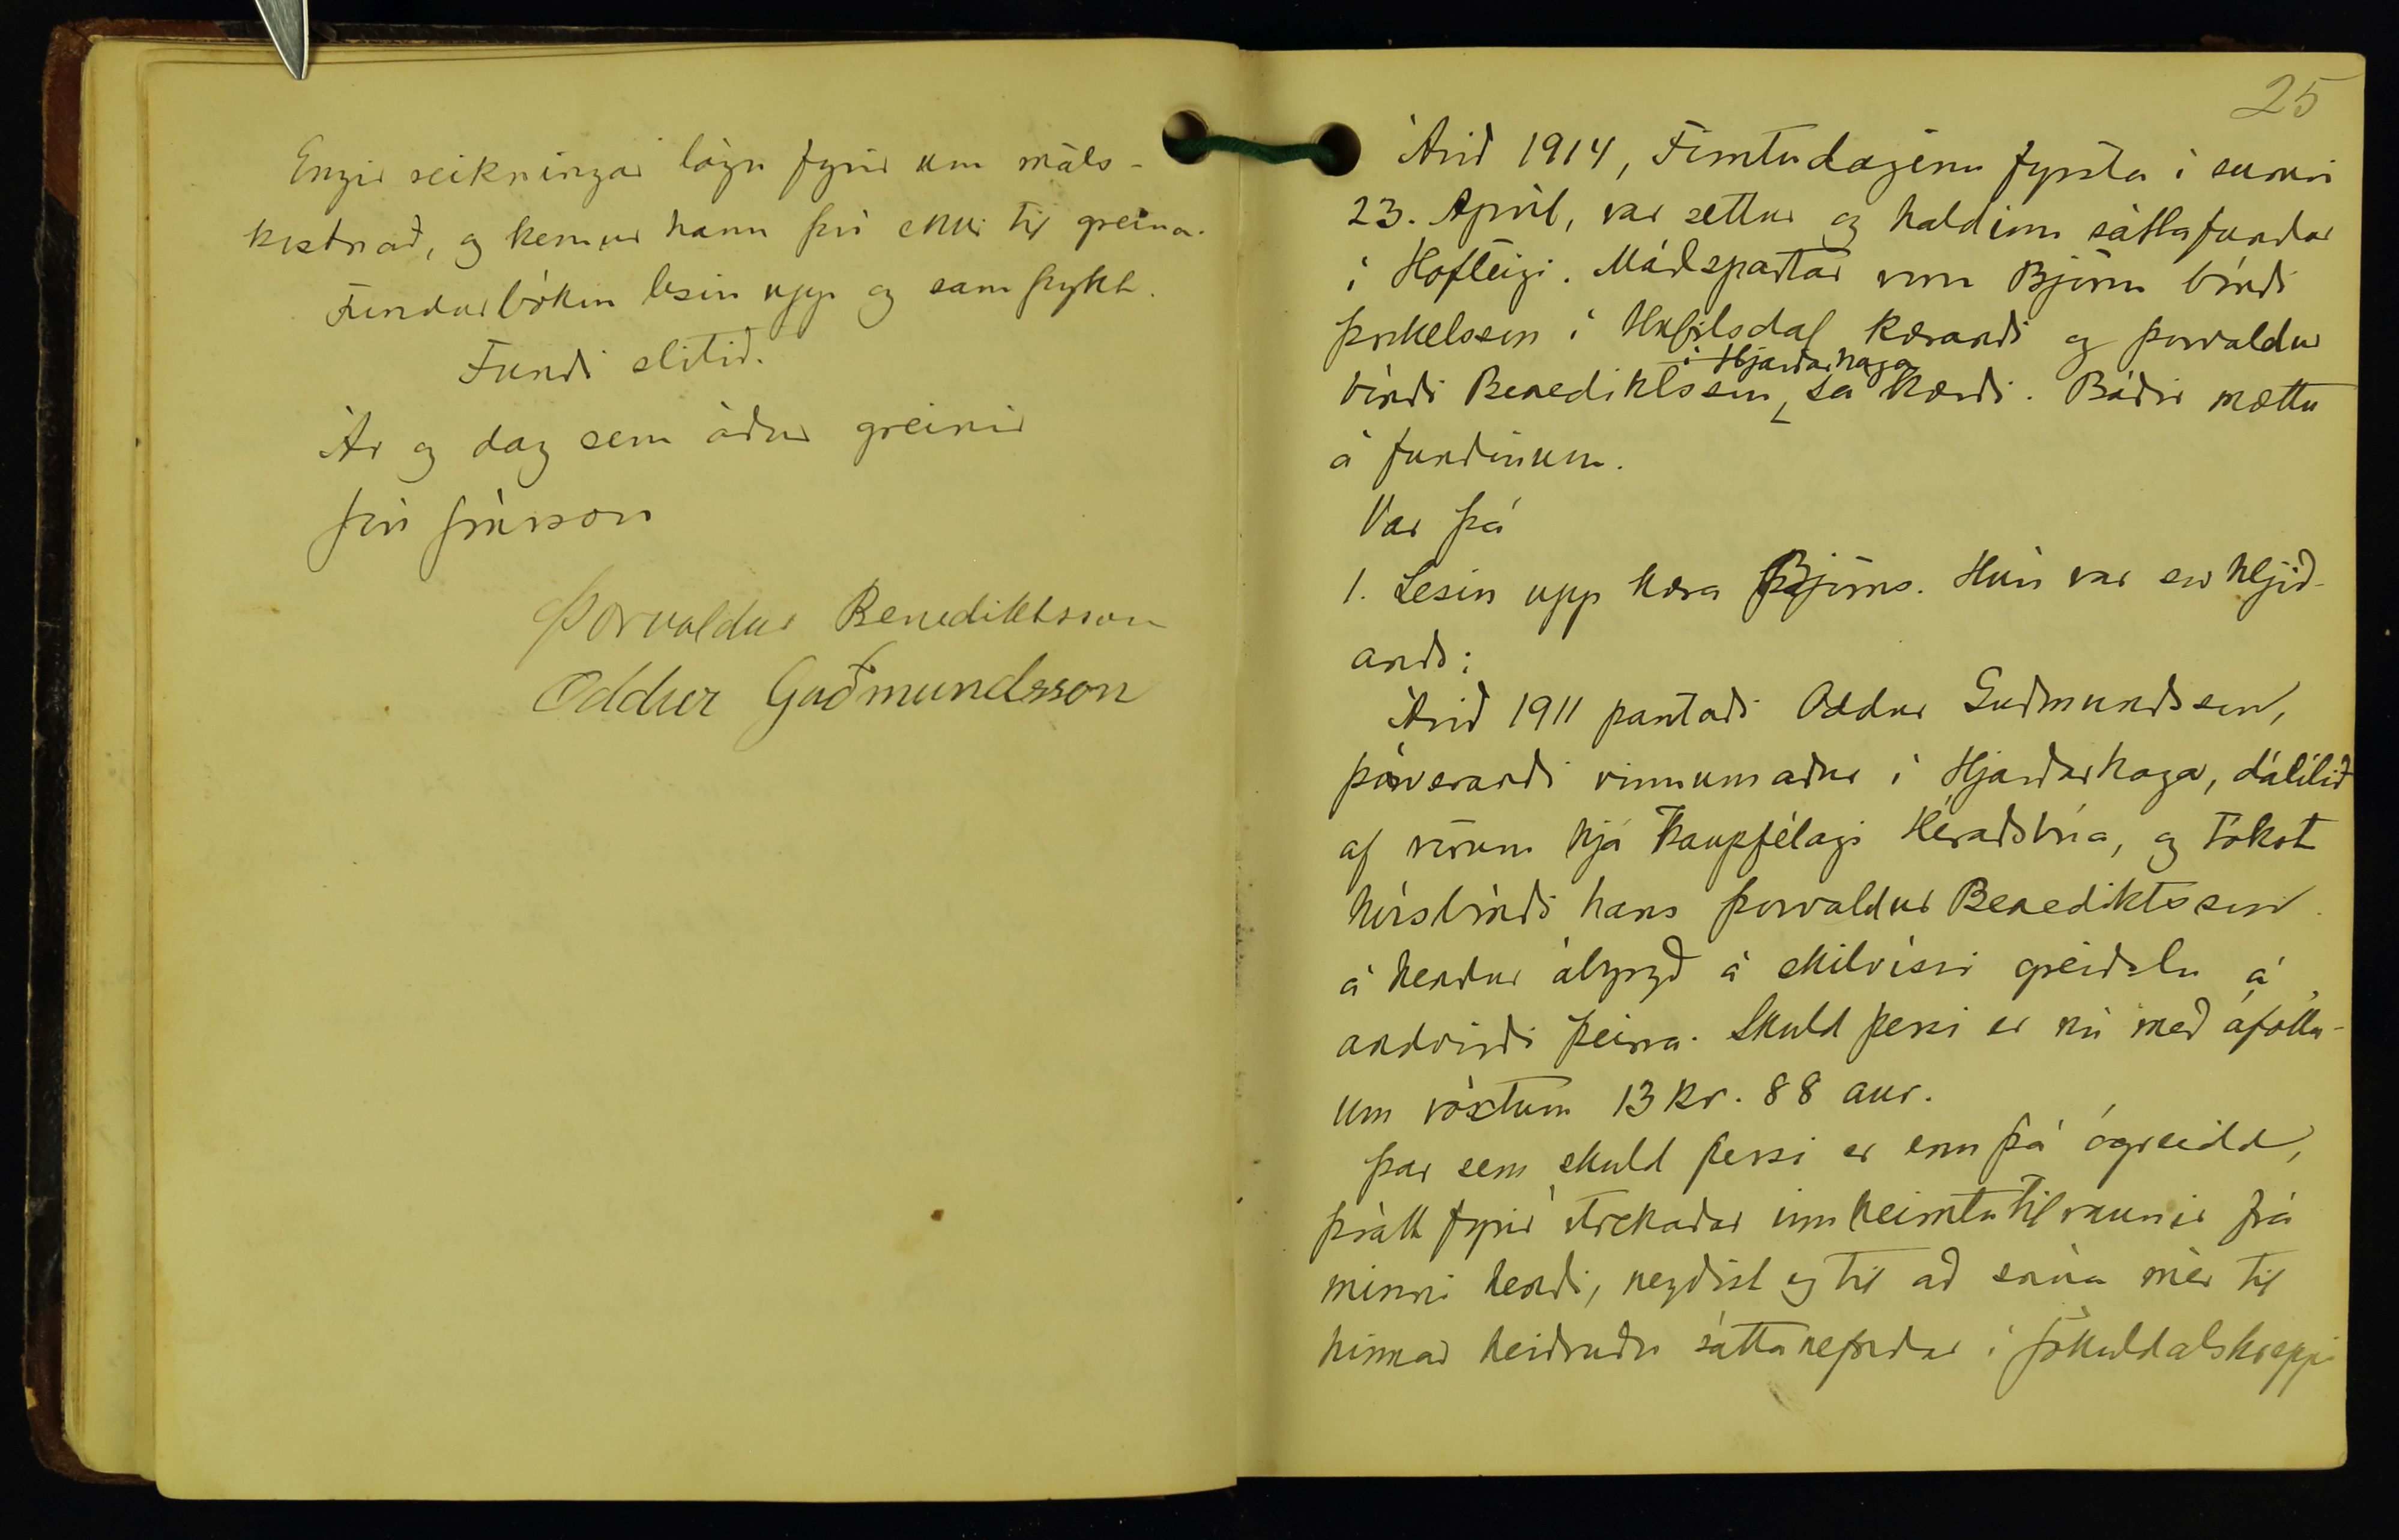 Engir reikningar lágu fyrir um máls-
kostnað, og kemur hann því ekki til greina.
Fundarbókin lesin upp og samþykt.
Fundi slitið.
Ár og dag sem áður greinir
Jón Jónsson
Þorvaldur Benediktsson
Oddur Guðmundsson
25
Árið 1914, Fimtudaginn fyrsta í sumri
23. Apríl, var settur og haldinn sáttafundur
í Hofteigi. Málspartar voru Björn bóndi
Þorkelsson í Hnefilsdal kærandi og Þorvaldur
í Hjarðarhaga
bóndi Benediktsson, sá kærði. Báðir mættu
á fundinum.
Var þá
1. Lesin upp kæra Björns. Hún var svo hljóð-
andi:
Árið 1911 pantaði Oddur Guðmundsson,
þáverandi vinnumaður í Hjarðarhaga, dálítið
af vörum hjá Kaupfélagi Héraðsbúa, og tókst
húsbóndi hans Þorvaldur Benediktsson
á hendur ábyrgð á skilvísri greiðslu á
andvirði þeirra. Skuld þessi er nú með áfölln-
um vöxtum 13 kr. 88 aur.
Þar sem skuld þessi er enn þá ógreidd,
þrátt fyrir ítrekaðar innheimtutilraunir frá
minni hendi, neyðist eg til að snúa mér til
hinnar heiðruðu sáttanefndar í Jökuldalshreppi